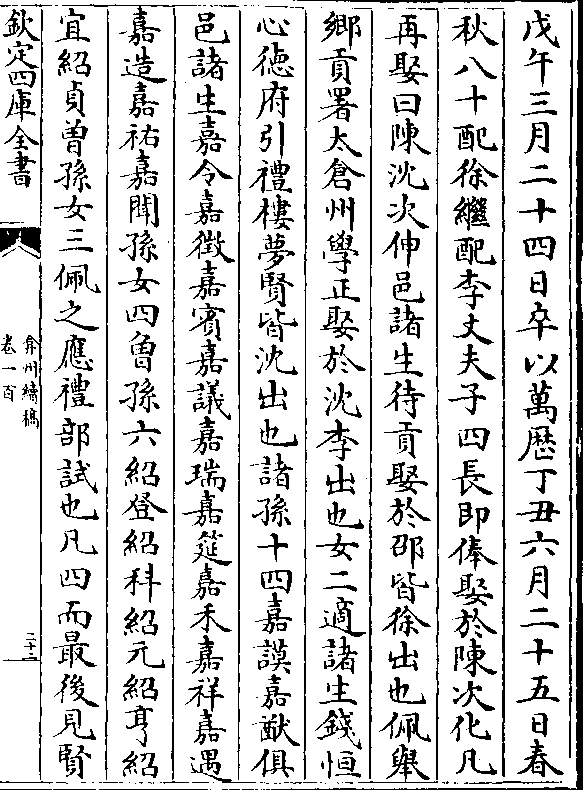 戊午三月二十四日卒以萬厯丁丑六月二十五日春
秋八十配徐繼配李丈夫子四長即俸娶於陳次化凡
再娶曰陳沈次伸邑諸生待貢娶於邵皆徐出也佩舉
鄉貢署太倉州學正娶於沈李出也女二適諸生錢恒
心徳府引禮樓夢賢皆沈出也諸孫十四嘉謨嘉猷俱
邑諸生嘉令嘉徵嘉賓嘉議嘉瑞嘉筵嘉禾嘉祥嘉遇
嘉造嘉祐嘉聞孫女四曽孫六紹登紹科紹元紹亨紹
宜紹貞曽孫女三佩之應禮部試也凡四而最後見賢
欽定四庫全書
弇州續稿
卷一百
二十二